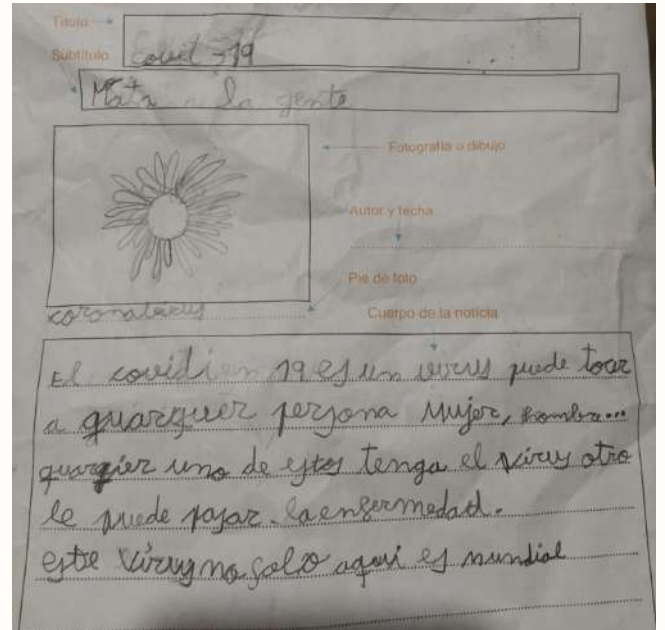 Título
Covid-19
Subtítulo
Mata a la gente
Fotografía o dibujo
Autor y fecha
Pie de foto
Cuerpo de la noticia
El covidien 19 es un virus puede tocar
a quarquer persona mujer, hombre...
quarquier uno de estos tenga el virus otro
le puede pasar la enfermedad.
este virus no solo aqui es mundial